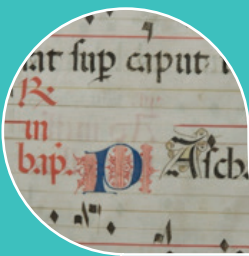 at sup caput
R.
in
bap. P Asch